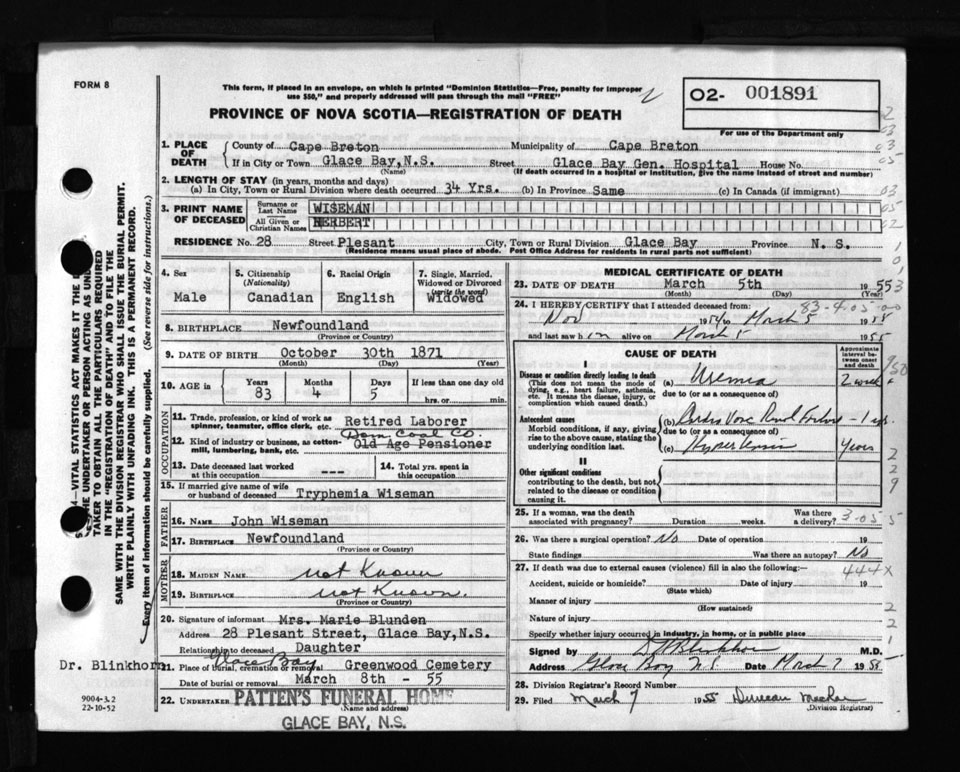 FORM 8
This form, if placed in an envelope, on which is printed "Dominion Statistics—Free, penalty for improper
use $50," and properly addressed will pass through the mail "FREE"
PROVINCE OF NOVA SCOTIA—REGISTRATION OF DEATH
O2- 001891
For use of the Department only
1. PLACE OF DEATH
County of Cape Breton Municipality of Cape Breton
If in City or Town Glace Bay, N.S. Street Glace Bay Gen. Hospital House No.
(Name) (If death occurred in a hospital or institution, give the name instead of street and number)
2. LENGTH OF STAY (in years, months and days)
(a) In City, Town or Rural Division where death occurred 34 Yrs. (b) In Province Same (c) In Canada (if immigrant)
3. PRINT NAME OF DECEASED
Surname or Last Name WISEMAN
All Given or Christian Names HERBERT
RESIDENCE No. 28 Street Plesant City, Town or Rural Division Glace Bay Province N. S.
(Residence means usual place of abode. Post Office Address for residents in rural parts not sufficient)
4. Sex
Male
5. Citizenship
(Nationality)
Canadian
6. Racial Origin
English
7. Single, Married, Widowed or Divorced
(write the word)
Widowed
8. BIRTHPLACE Newfoundland
(Province or Country)
9. DATE OF BIRTH October 30th 1871
(Month) (Day) (Year)
10. AGE in
Years Months Days If less than one day old
83 4 5 hrs. or min.
OCCUPATION
11. Trade, profession, or kind of work as
spinner, teamster, office clerk, etc. Retired Laborer
Dom Coal Co.
12. Kind of industry or business, as cotton-
mill, lumbering, bank, etc. Old Age Pensioner
13. Date deceased last worked
at this occupation ---
14. Total yrs. spent in
this occupation
15. If married give name of wife
or husband of deceased Tryphemia Wiseman
FATHER
16. NAME John Wiseman
17. BIRTHPLACE Newfoundland
(Province or Country)
MOTHER
18. MAIDEN NAME not Known
19. BIRTHPLACE not Known.
(Province or Country)
20. Signature of informant Mrs. Marie Blunden
Address 28 Plesant Street, Glace Bay, N.S.
Relationship to deceased Daughter
Glace Bay
21. Place of burial, cremation or removal Greenwood Cemetery
Date of burial or removal March 8th - 55
22. UNDERTAKER PATTEN'S FUNERAL HOME
(Name and address)
GLACE BAY, N.S.
Dr. Blinkhorn
9004-3.2
22-10-52
MEDICAL CERTIFICATE OF DEATH
23. DATE OF DEATH March 5th 1955
(Month) (Day) (Year)
24. I HEREBY CERTIFY that I attended deceased from
83-4-05-00
Nov 1954 to March 5 1955
and last saw h im alive on March 5 1955
CAUSE OF DEATH
Approximate interval between onset and death
I
Disease or condition directly leading to death
(This does not mean the mode of
dying, e.g., heart failure, asthenia,
etc. It means the disease, injury, or
complication which caused death.)
(a) Uremia 2 weeks
due to (or as a consequence of)
Antecedent causes
Morbid conditions, if any, giving
rise to the above cause, stating the
underlying condition last.
(b) 1 yr.
due to (or as a consequence of)
(c) Hypertension years
II
Other significant conditions
contributing to the death, but not
related to the disease or condition
causing it.
25. If a woman, was the death
associated with pregnancy? Duration weeks. Was there
a delivery?
3-055
26. Was there a surgical operation? No Date of operation 19
State findings Was there an autopsy? No
27. If death was due to external causes (violence) fill in also the following:—
444x
Accident, suicide or homicide? Date of injury 19
(State which)
Manner of injury
(How sustained)
Nature of injury
Specify whether injury occurred in industry, in home, or in public place
Signed by Blinkhorn M.D.
Address Glace Bay N.S. Date March 7 1955
28. Division Registrar's Record Number
29. Filed March 7 1955 Duncan MacRae
(Division Registrar)
TAKER TO OBTAIN ALL THE PARTICULARS REQUIRED
IN THE "REGISTRATION OF DEATH" AND TO FILE THE
SAME WITH THE DIVISION REGISTRAR WHO SHALL ISSUE THE BURIAL PERMIT.
WRITE PLAINLY WITH UNFADING INK. THIS IS A PERMANENT RECORD.
Every item of information should be carefully supplied. (See reverse side for instructions.)